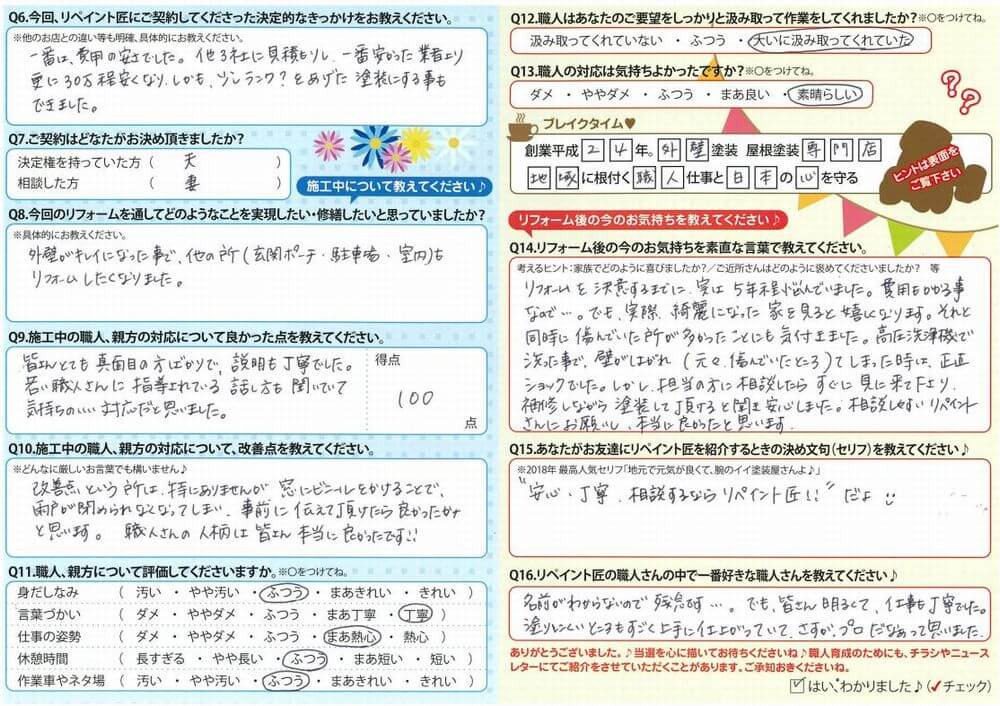 Q6.今回、リペイント匠にご契約してくださった決定的なきっかけをお教えください。
※他のお店との違い等も明確、具体的にお答えください。
一番は、費用の安さでした。他3社に見積もりし、一番安かった業者より
更に30万程安くなり、しかも、ワンランク?とあげた塗装にする事も
できました。
Q7.ご契約はどなたがお決め頂きましたか?
決定権を持っていた方 ( 夫 )
相談した方 ( 妻 )
施工中について教えてください♪
Q8.今回のリフォームを通してどのようなことを実現したい・修繕したいと思っていましたか?
※具体的にお教えください。
外壁がキレイになった事で、他の所(玄関ポーチ・駐車場・室内)も
リフォームしたくなりました。
Q9.施工中の職人、親方の対応について良かった点を教えてください。
皆さんとても真面目の方ばかりで、説明も丁寧でした。
若い職人さんに指導されている話し方も聞いていて
気持ちのいい対応だと思いました。
得点
100
点
Q10.施工中の職人、親方の対応について、改善点を教えてください。
※どんなに厳しいお言葉でも構いません♪
改善点という所は、特にありませんが窓にビニールをかけることで、
雨戸が閉められなくなってしまい、事前に伝えて頂けたら良かったかな
と思います。 職人さんの人柄は皆さん本当に良かったです!!
Q11.職人、親方について評価してくださいますか。※○をつけてね。
身だしなみ ( 汚い ・ やや汚い ・ ふつう ・ まあきれい ・ きれい )
言葉づかい ( ダメ ・ ややダメ ・ ふつう ・ まあ丁寧 ・ 丁寧 )
仕事の姿勢 ( ダメ ・ ややダメ ・ ふつう ・ まあ熱心 ・ 熱心 )
休憩時間 ( 長すぎる ・ やや長い ・ ふつう ・ まあ短い ・ 短い )
作業車やネタ場 ( 汚い ・ やや汚い ・ ふつう ・ まあきれい ・ きれい )
Q12.職人はあなたのご要望をしっかりと汲み取って作業をしてくれましたか?※○をつけてね。
汲み取ってくれていない ・ ふつう ・ 大いに汲み取ってくれていた
Q13.職人の対応は気持ちよかったですか?※○をつけてね。
ダメ ・ ややダメ ・ ふつう ・ まあ良い ・ 素晴らしい
??
ブレイクタイム♥
創業平成24年。外壁塗装 屋根塗装専門店
地域に根付く職人仕事と日本の心を守る
ヒントは表面を
ご覧下さい
リフォーム後の今のお気持ちを教えてください♪
Q14.リフォーム後の今のお気持ちを素直な言葉で教えてください。
考えるヒント:家族でどのように喜びましたか?/ご近所さんはどのように褒めてくださいましたか? 等
リフォームを決意するまでに、実は5年程悩んでいました。費用もかかる事
なので…。でも、実際、綺麗になった家を見ると嬉しくなります。それと
同時に傷んでいた所が多かったことにも気付きました。高圧洗浄機で
洗った事で、壁がはがれ(元々傷んでいたところ)てしまった時は、正直
ショックでした。しかし、担当の方に相談したらすぐに見に来て下さり、
補修しながら塗装して頂けると聞き安心しました。相談しやすいリペイント
さんにお願いし、本当に良かったと思います。
Q15.あなたがお友達にリペイント匠を紹介するときの決め文句(セリフ)を教えてください。
※2018年 最高人気セリフ「地元で元気が良くて、腕のイイ塗装屋さんよ♪」
"安心・丁寧、相談するならリペイント匠!!"だよ
Q16.リペイント匠の職人さんの中で一番好きな職人さんを教えてください♪
名前がわからないので残念です…。でも、皆さん明るくて、仕事も丁寧でした。
塗りにくいところもすごく上手に仕上がっていて、さすが、プロだなあって思いました。
ありがとうございました。♪当選を心に描いてお待ちくださいね♪職人育成のためにも、チラシやニュース
レターにてご紹介をさせていただくことがあります。ご承知おきくださいね。
☑はい、わかりました♪(✓チェック)